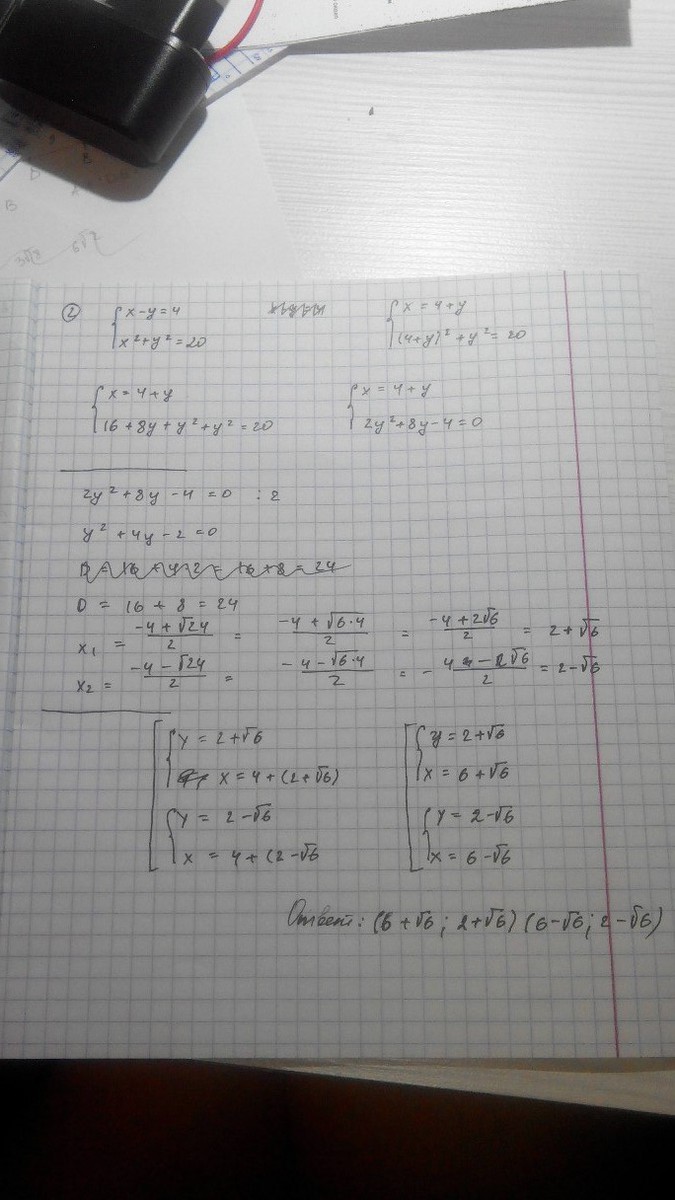 ② { x - y = 4 { x = 4 + y
x² + y² = 20 (4+y)² + y² = 20
{ x = 4 + y { x = 4 + y
16 + 8y + y² + y² = 20 2y² + 8y - 4 = 0
2y² + 8y - 4 = 0 :2
y² + 4y - 2 = 0
D = 16 + 8 = 24
x₁ = (-4 + √24)/2 = (-4 + √6·4)/2 = (-4 + 2√6)/2 = 2 + √6
x₂ = (-4 - √24)/2 = (-4 - √6·4)/2 = -(4 - 2√6)/2 = 2 - √6
[ { y = 2 + √6 [ { y = 2 + √6
x = 4 + (2 + √6) x = 6 + √6
{ y = 2 - √6 { y = 2 - √6
x = 4 + (2 - √6 x = 6 - √6
Ответ: (6 + √6 ; 2 + √6) (6 - √6 ; 2 - √6)